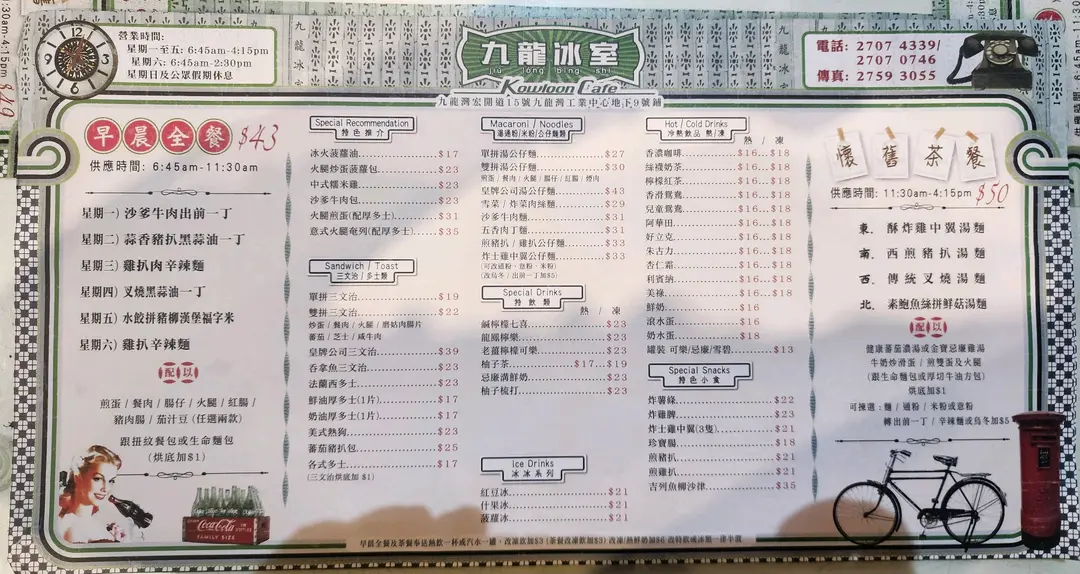 營業時間:
星期一至五: 6:45am-4:15pm
星期六: 6:45am-2:30pm
星期日及公眾假期休息
九龍冰室
jiu long bing shi
Kowloon Cafe
九龍灣宏開道15號九龍灣工業中心地下9號舖
電話: 2707 4339/
2707 0746
傳真: 2759 3055
早晨全餐 $43
供應時間: 6:45am-11:30am
星期一) 沙爹牛肉出前一丁
星期二) 蒜香豬扒黑蒜油一丁
星期三) 雞扒肉辛辣麵
星期四) 叉燒黑蒜油一丁
星期五) 水餃拼豬柳漢堡福字米
星期六) 雞扒辛辣麵
配以
煎蛋 / 餐肉 / 腸仔 / 火腿 / 紅腸 /
豬肉腸 / 茄汁豆 (任選兩款)
跟扭紋餐包或生命麵包
(烘底加$1)
Coca-Cola
FAMILY SIZE
Special Recommendation
特色推介
冰火菠蘿油 $17
火腿炒蛋菠蘿包 $23
中式糯米雞 $23
沙爹牛肉包 $23
火腿煎蛋(配厚多士) $31
意式火腿奄列(配厚多士) $35
Sandwich / Toast
三文治 / 多士類
單拼三文治 $19
雙拼三文治 $22
炒蛋 / 餐肉 / 火腿 / 磨菇肉腸片
蕃茄 / 芝士 / 咸牛肉
皇牌公司三文治 $39
吞拿魚三文治 $23
法蘭西多士 $23
鮮油厚多士(1片) $17
奶油厚多士(1片) $17
美式熱狗 $23
蕃茄豬扒包 $25
各式多士 $17
(三文治烘底加 $1)
Macaroni / Noodles
湯通粉/米粉/公仔麵類
單拼湯公仔麵 $27
雙拼湯公仔麵 $30
煎蛋 / 餐肉 / 火腿 / 腸仔 / 紅腸 / 煙肉
皇牌公司湯公仔麵 $43
雪菜 / 炸菜肉絲麵 $29
沙爹牛肉麵 $31
五香肉丁麵 $31
煎豬扒 / 雞扒公仔麵 $33
炸士雞中翼公仔麵 $33
(可改通粉、意粉、米粉)
(改烏冬 / 出前一丁加$5)
Special Drinks
特飲類
熱 / 凍
鹹檸檬七喜 $23
龍鳳檸樂 $23
老薑檸檬可樂 $23
柚子茶 $17 $19
忌廉溝鮮奶 $23
柚子梳打 $23
Ice Drinks
冰冰系列
紅豆冰 $21
什果冰 $21
菠蘿冰 $21
Hot / Cold Drinks
冷熱飲品 熱 / 凍
熱 / 凍
香濃咖啡 $16 $18
絲襪奶茶 $16 $18
檸檬紅茶 $16 $18
香滑鴛鴦 $16 $18
兒童鴛鴦 $16 $18
阿華田 $16 $18
好立克 $16 $18
朱古力 $16 $18
杏仁霜 $16 $18
利賓納 $16 $18
美祿 $16 $18
鮮奶 $16
滾水蛋 $16
奶水蛋 $18
罐裝 可樂/忌廉/雪碧 $13
Special Snacks
特色小食
炸薯條 $22
炸雞脾 $23
炸士雞中翼(3隻) $21
珍寶腸 $18
煎豬扒 $21
煎雞扒 $21
吉列魚柳沙律 $35
懷舊茶餐
供應時間: 11:30am-4:15pm $50
東. 酥炸雞中翼湯麵
南. 西煎豬扒湯麵
西. 傳統叉燒湯麵
北. 素鮑魚絲拼鮮菇湯麵
配以
健康蕃茄濃湯或金寶忌廉雞湯
牛奶炒滑蛋 / 煎雙蛋及火腿
(跟生命麵包或厚切牛油方包)
烘底加$1
可揀選 : 麵 / 通粉 / 米粉或意粉
轉出前一丁 / 辛辣麵或烏冬加$5
早晨全餐及茶餐奉送熱飲一杯或汽水一罐, 改凍飲加$3 (茶餐改凍飲加$3)